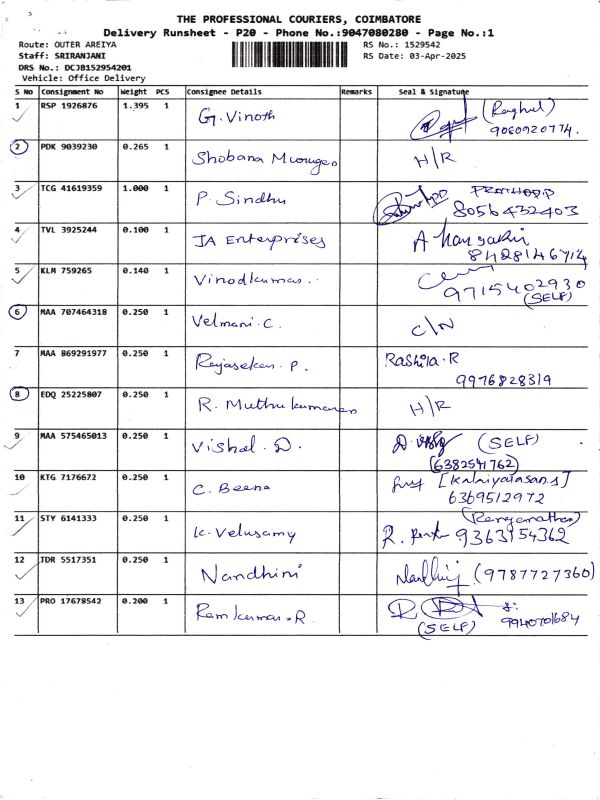 THE PROFESSIONAL COURIERS, COIMBATORE
Delivery Runsheet - P20 - Phone No.:9047080280 - Page No.:1
Route: OUTER AREIYA RS No.: 1529542
Staff: SRIRANJANI RS Date: 03-Apr-2025
DRS No.: DCJB152954201
Vehicle: Office Delivery
S No Consignment No Weight PCS Consignee Details Remarks Seal & Signature
1 RSP 1926876 1.395 1 G. Vinoth (Raghul)
9060920774.
2 PDK 9039230 0.265 1 Shobana Murugan H/R
3 TCG 41619359 1.000 1 P. Sindhu
8056432403
4 TVL 3925244 0.100 1 JA Enterprises
8428146714
5 KLM 759265 0.140 1 Vinodkumar.
9715402930
(SELF)
6 MAA 707464318 0.250 1 Velmani.C. C/N
7 MAA 869291977 0.250 1 Rajasekar.P. Rashila.R
9976828319
8 EDQ 25225807 0.250 1 R. Muthukumaran H/R
9 MAA 575465013 0.250 1 Vishal.D. (SELF)
(6382541762)
10 KTG 7176672 0.250 1 C. Beena [Kalaiyarasan.s]
6369512972
11 STY 6141333 0.250 1 K. Velusamy (Ranganathan)
9363154362
12 JDR 5517351 0.250 1 Nandhini (9787727360)
13 PRO 17678542 0.200 1 Ramkumar.R. 9940701684
(SELF)